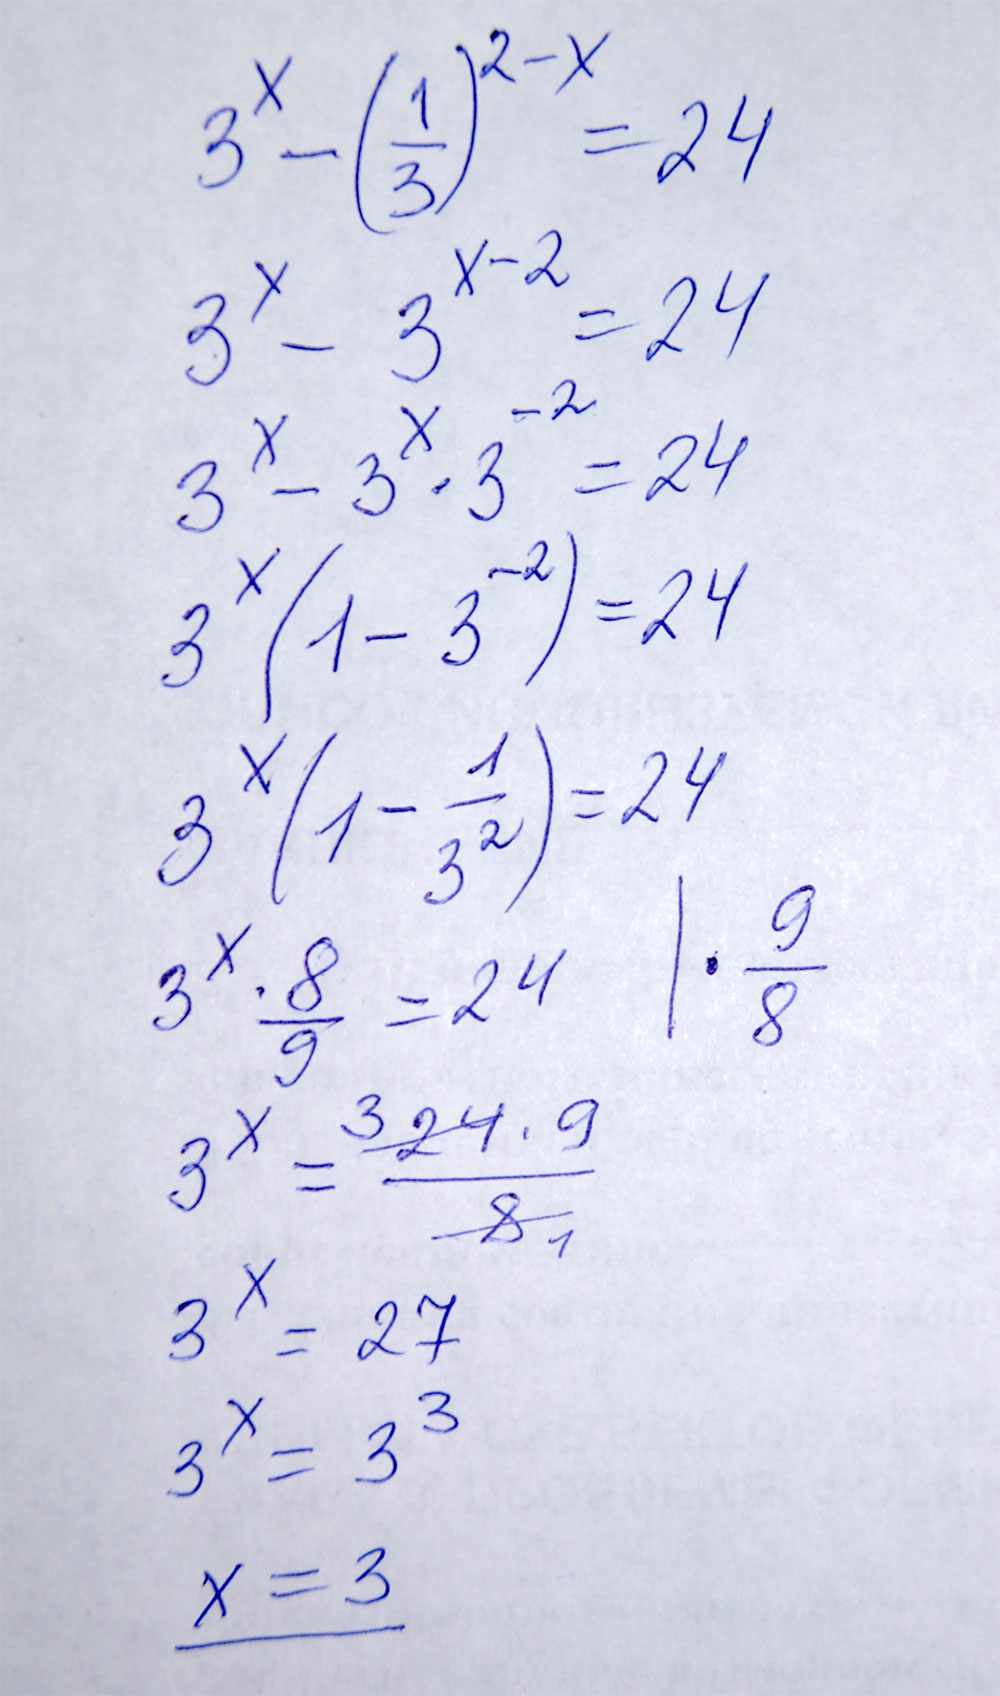 3^x - (1/3)^(2-x) = 24
3^x - 3^(x-2) = 24
3^x - 3^x · 3^(-2) = 24
3^x (1 - 3^(-2)) = 24
3^x (1 - 1/3^2) = 24
3^x · 8/9 = 24 | · 9/8
3^x = 3 24 · 9 / 8 1
3^x = 27
3^x = 3^3
x = 3